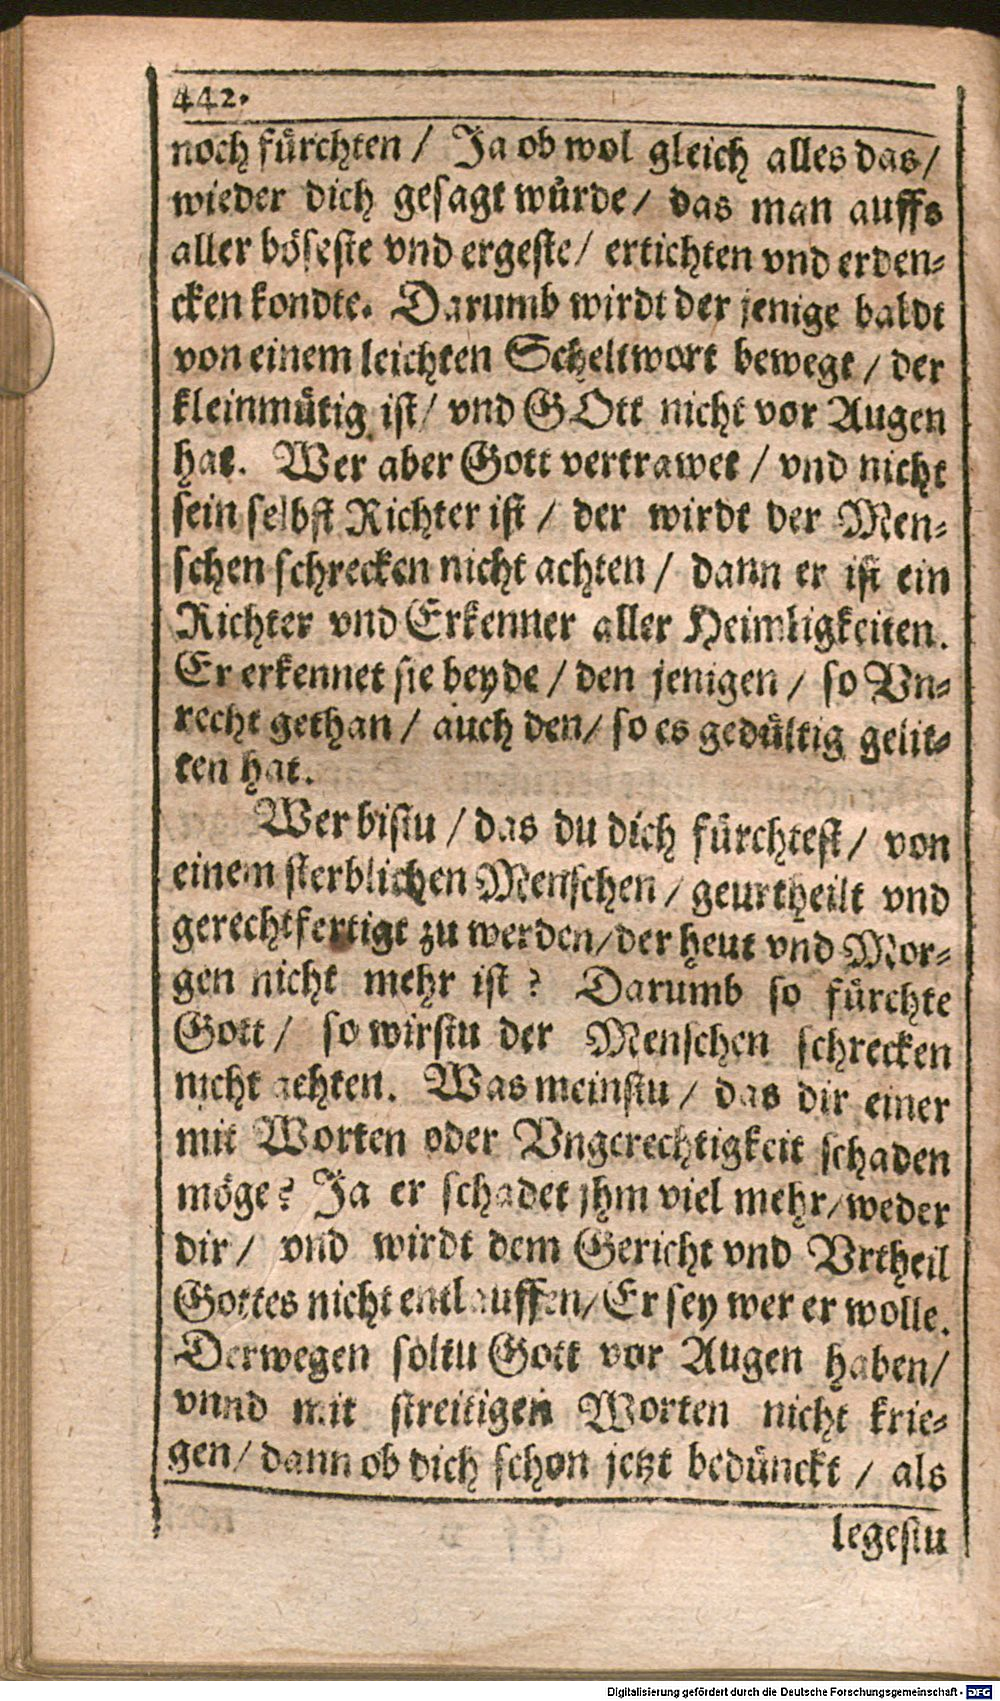 442.
noch fürchten / Ja ob wol gleich alles das /
wieder dich gesagt würde / das man auffs
aller böseste vnd ergeste / ertichten vnd erden-
cken kondte. Darumb wirdt der jenige baldt
von einem leichten Scheltwort bewegt / der
kleinmütig ist / vnd GOtt nicht vor Augen
hat. Wer aber Gott vertrawet / vnd nicht
sein selbst Richter ist / der wirdt der Men-
schen schrecken nicht achten / dann er ist ein
Richter vnd Erkenner aller Heimligkeiten.
Er erkennet sie beyde / den jenigen / so Vn-
recht gethan / auch den / so es gedültig gelit-
ten hat.
Wer bistu / das du dich fürchtest / von
einem sterblichen Menschen / geurtheilt vnd
gerechtfertigt zu werden / der heut vnd Mor-
gen nicht mehr ist? Darumb so fürchte
Gott / so wirstu der Menschen schrecken
nicht achten. Was meinstu / das dir einer
mit Worten oder Vngerechtigkeit schaden
möge? Ja er schadet jhm viel mehr / weder
dir / vnd wirdt dem Gericht vnd Vrtheil
Gottes nicht entlauffen / Er sey wer er wolle.
Derwegen soltu Gott vor Augen haben /
vnnd mit streitigen Worten nicht krie-
gen / dann ob dich schon jetzt bedünckt / als
legestu
Digitalisierung gefördert durch die Deutsche Forschungsgemeinschaft - DFG